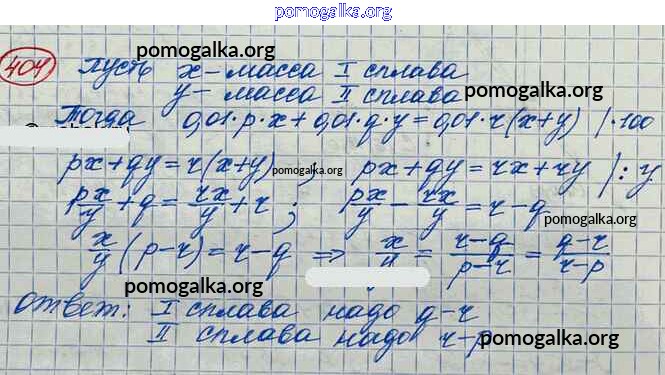 pomogalka.org
404 Пусть x - масса I сплава
pomogalka.org
y - масса II сплава
pomogalka.org
Тогда 0,01·p·x+0,01·q·y=0,01·r(x+y) |·100
px+qy=r(x+y) ; px+qy=rx+ry |:y
pomogalka.org
px/y+q=rx/y+r ; px/y-rx/y=r-q
pomogalka.org
x/y(p-r)=r-q ⇒ x/y=r-q/p-r=q-r/r-p
pomogalka.org
Ответ: I сплава надо q-r
II сплава надо r-p
pomogalka.org